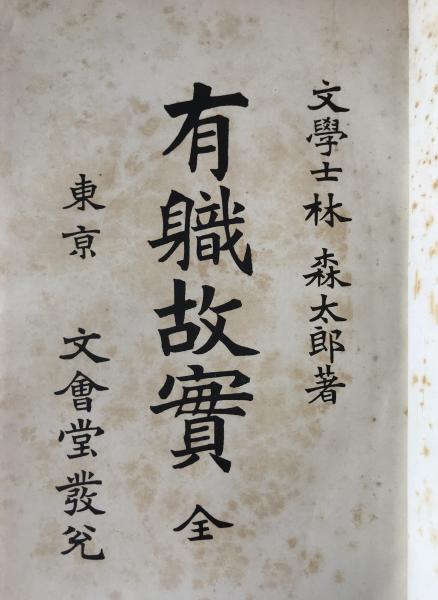 文學士林 森太郎著
有職故實 全
東亰 文會堂發兌